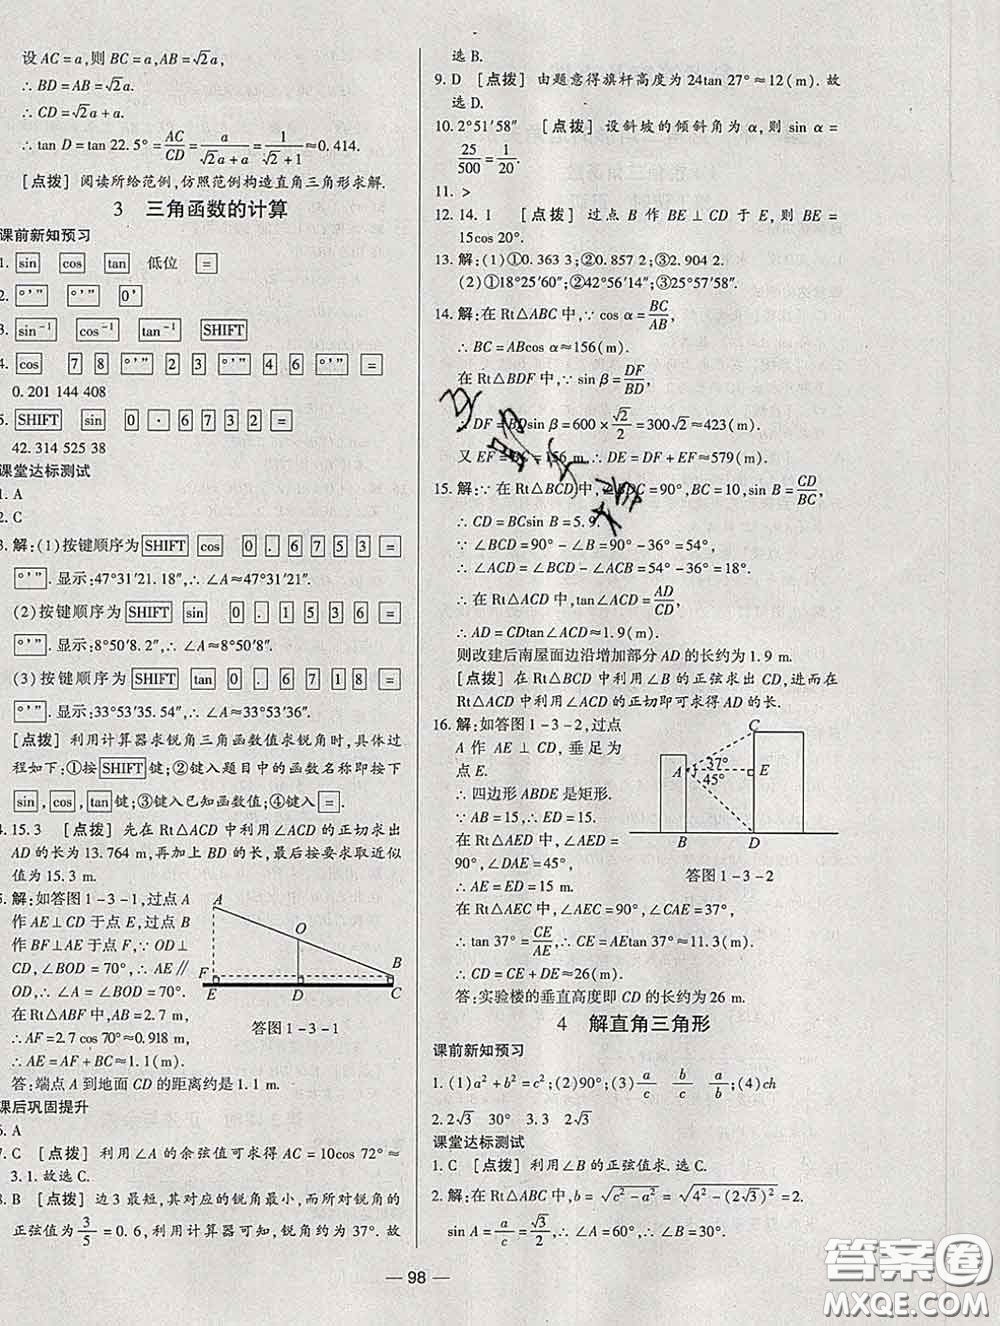 设 AC=a,则 BC=a,AB=√2a,
∴ BD=AB=√2a.
∴ CD=√2a+a.
∴ tan D=tan 22.5°=AC/CD=a/(√2a+a)=1/(√2+1)≈0.414.
[点拨] 阅读所给范例,仿照范例构造直角三角形求解.
3 三角函数的计算
课前新知预习
1. sin cos tan 低位 =
2. °'" °'" 0'
3. sin⁻¹ cos⁻¹ tan⁻¹ SHIFT
4. cos 7 8 °'" 2 3 °'" 4 6 °'" =
0.201 144 408
5. SHIFT sin 0 · 6 7 3 2 =
42.314 525 38
课堂达标测试
1. A
2. C
3. 解:(1)按键顺序为 SHIFT cos 0 . 6 7 5 3 =
°'" . 显示:47°31′21.18″,∴ ∠A≈47°31′21″.
(2)按键顺序为 SHIFT sin 0 . 1 5 3 6 =
°'" . 显示:8°50′8.2″,∴ ∠A≈8°50′8″.
(3)按键顺序为 SHIFT tan 0 . 6 7 1 8 =
°'" . 显示:33°53′35.54″,∴ ∠A≈33°53′36″.
[点拨] 利用计算器求锐角三角函数值求锐角时,具体过
程如下:①按 SHIFT 键;②键入题目中的函数名称即按下
sin , cos , tan 键;③键入已知函数值;④键入 = .
4. 15.3 [点拨] 先在 Rt△ACD 中利用∠ACD 的正切求出
AD 的长约为 13.764 m,再加上 BD 的长,最后按要求取近似
值为 15.3 m.
5. 解:如答图 1-3-1,过点 A
作 AE⊥CD 于点 E,过点 B
作 BF⊥AE 于点 F,∵ OD⊥
CD,∠BOD=70°,∴ AE∥
OD,∴ ∠A=∠BOD=70°.
在 Rt△ABF 中,AB=2.7 m,
∴ AF=2.7cos 70°≈0.918 m,
∴ AE=AF+BC≈1.1 m.
A
O
F
B
E
D
C
答图 1-3-1
答:端点 A 到地面 CD 的距离约是 1.1 m.
课后巩固提升
6. A
7. C [点拨] 利用∠A 的余弦值可求得 AC=10cos 72°≈
3.1.故选 C.
8. B [点拨] 边 3 最短,其对应的锐角最小,而所对锐角的
正弦值为3/5=0.6,利用计算器可知,锐角约为 37°.故
选 B.
9. D [点拨] 由题意得旗杆高度为 24tan 27°≈12(m).故
选 D.
10. 2°51′58″ [点拨] 设斜坡的倾斜角为 α,则 sin α=
25/500=1/20.
11. >
12. 14.1 [点拨] 过点 B 作 BE⊥CD 于 E,则 BE=
15cos 20°.
13. 解:(1)①0.363 3;②0.857 2;③2.904 2.
(2)①18°25′60″;②42°56′14″;③25°57′58″.
14. 解:在 Rt△ABC 中,∵ cos α=BC/AB,
∴ BC=ABcos α≈156(m).
在 Rt△BDF 中,∵ sin β=DF/BD,
∴ DF=BDsin β=600×√2/2=300√2≈423(m).
又 EF=BC=156 m,∴ DE=DF+EF≈579(m).
15. 解:∵ 在 Rt△BCD 中,∠BDC=90°,BC=10,sin B=CD/BC,
∴ CD=BCsin B=5.9.
∵ ∠BCD=90°-∠B=90°-36°=54°,
∴ ∠ACD=∠BCD-∠ACB=54°-36°=18°.
∴ 在 Rt△ACD 中,tan∠ACD=AD/CD,
∴ AD=CDtan∠ACD≈1.9(m).
则改建后南屋面边沿增加部分 AD 的长约为 1.9 m.
[点拨] 在 Rt△BCD 中利用∠B 的正弦求出 CD,进而在
Rt△ACD 中利用∠ACD 的正切即可求得 AD 的长.
16. 解:如答图 1-3-2,过点
A 作 AE⊥CD,垂足为
点 E.
∴ 四边形 ABDE 是矩形.
∵ AB=15,∴ ED=15.
在 Rt△AED 中,∠AED=
90°,∠DAE=45°,
∴ AE=ED=15 m.
C
A
37°
45°
E
B
D
答图 1-3-2
在 Rt△AEC 中,∠AEC=90°,∠CAE=37°,
∵ tan 37°=CE/AE,∴ CE=AEtan 37°≈11.3(m).
∴ CD=CE+DE≈26(m).
答:实验楼的垂直高度即 CD 的长约为 26 m.
4 解直角三角形
课前新知预习
1. (1)a²+b²=c²;(2)90°;(3)a/c b/c a/b;(4)ch
2. 2√3 30° 3. 3 2√3
课堂达标测试
1. C [点拨] 利用∠B 的正弦值求.选 C.
2. 解:在 Rt△ABC 中,b=√(c²-a²)=√(4²-(2√3)²)=2.
sin A=a/c=√3/2,∴ ∠A=60°,∴ ∠B=30°.
98
答案圈
MXQE.COM